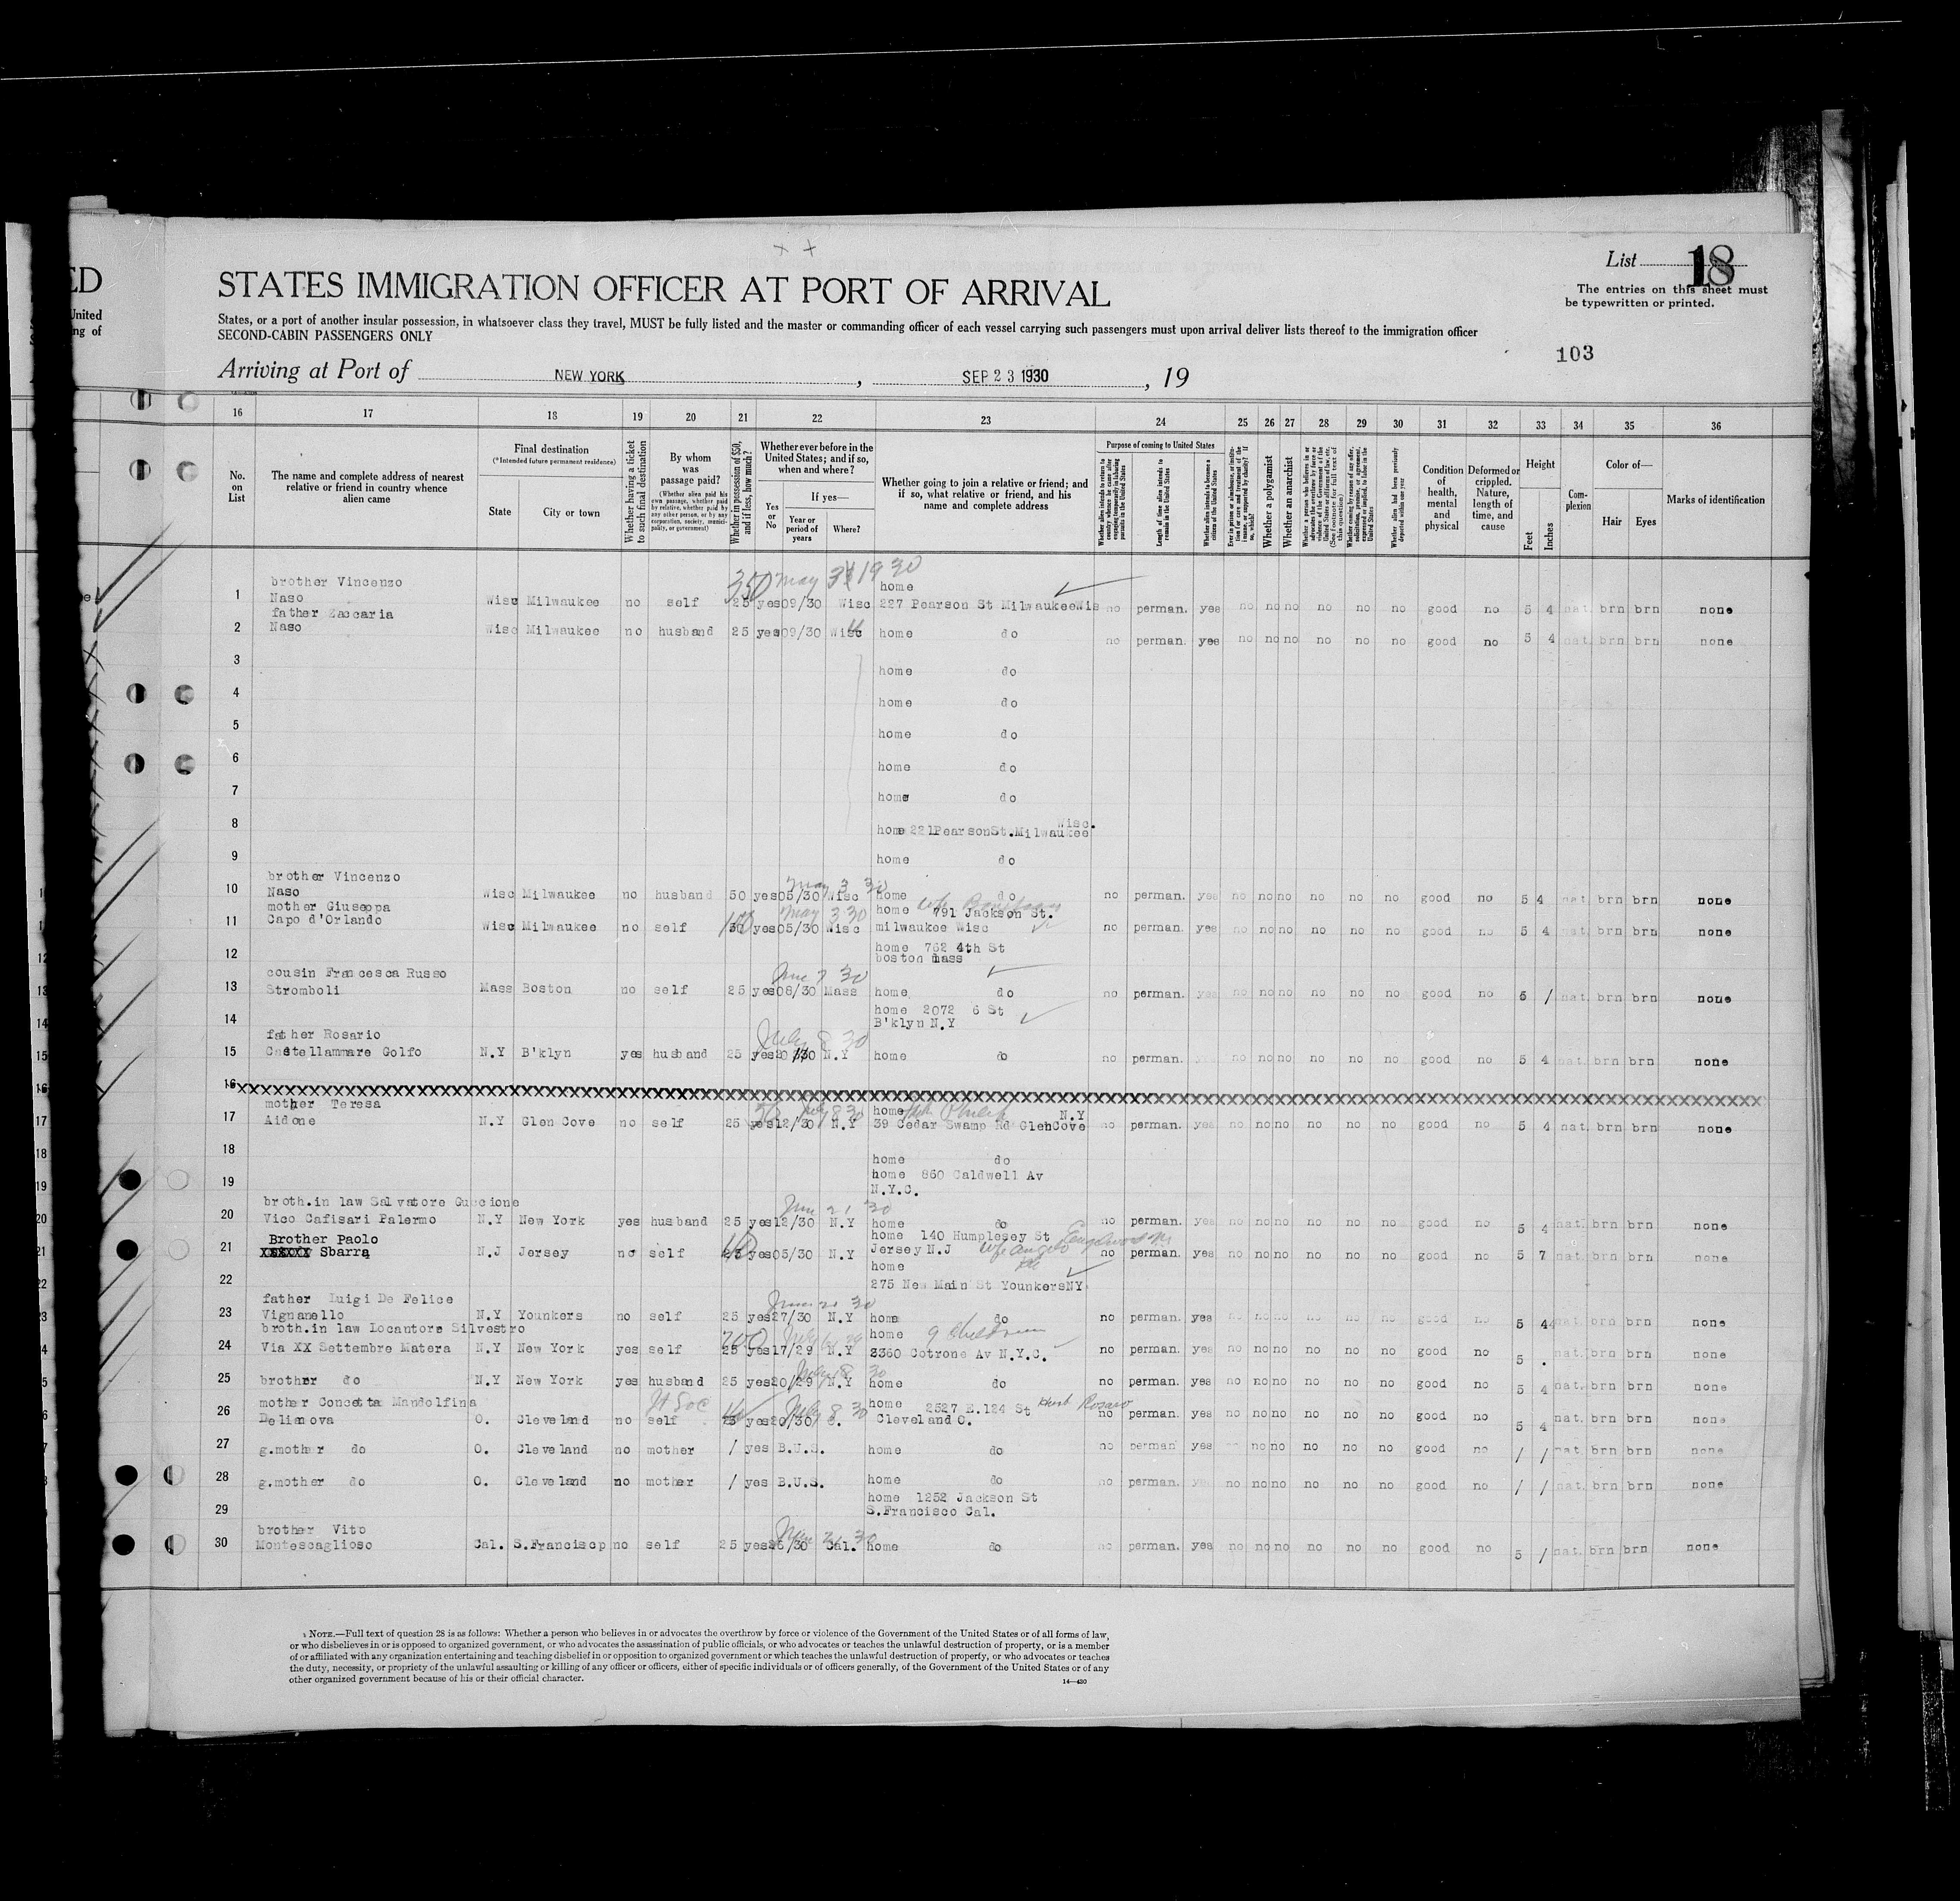 List 18
The entries on this sheet must
be typewritten or printed.
ED
STATES IMMIGRATION OFFICER AT PORT OF ARRIVAL
United
ng of
States, or a port of another insular possession, in whatsoever class they travel, MUST be fully listed and the master or commanding officer of each vessel carrying such passengers must upon arrival deliver lists thereof to the immigration officer
SECOND-CABIN PASSENGERS ONLY
103
Arriving at Port of NEW YORK, SEP 23 1930, 19
16 17 18 19 20 21 22 23 24 25 26 27 28 29 30 31 32 33 34 35 36
No. on List
The name and complete address of nearest relative or friend in country whence alien came
Final destination
(*Intended future permanent residence)
State
City or town
Whether having a ticket to such final destination
By whom was passage paid?
(Whether alien paid his own passage, whether paid by relative, whether paid by any other person, or by any corporation, society, municipality, or government)
Whether in possession of $50, and if less, how much?
Whether ever before in the United States; and if so, when and where?
Yes or No
If yes—
Year or period of years
Where?
Whether going to join a relative or friend; and if so, what relative or friend, and his name and complete address
Purpose of coming to United States
Whether alien intends to return to country whence he came after engaging temporarily in laboring pursuits in the United States
Length of time alien intends to remain in the United States
Whether alien intends to become a citizen of the United States
Whether a polygamist
Whether an anarchist
Whether alien had been previously deported within one year
Condition of health, mental and physical
Deformed or crippled. Nature, length of time, and cause
Height
Feet
Inches
Complexion
Color of—
Hair
Eyes
Marks of identification
350 May 31 1930
1 brother Vincenzo Naso Wisc Milwaukee no self 25 yes 09/30 Wisc home 227 Pearson St Milwaukee Wis no perman. yes no no no no no no good no 5 4 nat. brn brn none
2 father Zaccaria Naso Wisc Milwaukee no husband 25 yes 09/30 Wisc home do no perman. yes no no no no no no good no 5 4 nat. brn brn none
3 home do
4 home do
5 home do
6 home do
7 home do
8 home 221 Pearson St. Milwaukee Wisc.
9 home do
10 brother Vincenzo Naso Wisc Milwaukee no husband 50 yes 05/30 Wisc May 3 30 home do no perman. yes no no no no no no good no 5 4 nat. brn brn none
11 mother Giuseppa Capo d'Orlando Wisc Milwaukee no self yes 05/30 Wisc May 3 30 home 791 Jackson St. milwaukee Wisc no perman. yes no no no no no no good no 5 4 nat. brn brn none
12 home 762 4th St boston mass
13 cousin Francesca Russo Stromboli Mass Boston no self 25 yes 06/30 Mass home do no perman. yes no no no no no no good no 5 / nat. brn brn none
14 home 2072 6 St B'klyn N.Y
15 father Rosario Castellammare Golfo N.Y B'klyn yes husband 25 yes N.Y July 8 30 home do no perman. no no no no no no good no 5 4 nat. brn brn none
16 xxxxxxxxxxxxxxxxxxxxxxxxxxxxxxxxxxxxxxxx
17 mother Teresa Aidone N.Y Glen Cove no self 25 yes 12/30 N.Y July 8 30 home Philip 39 Cedar Swamp Rd Glen Cove N.Y no perman. yes no no no no no no good no 5 4 nat. brn brn none
18 home do
19 home 860 Caldwell Av N.Y.C.
20 broth.in law Salvatore Guccione Vico Cafisari Palermo N.Y New York yes husband 25 yes 12/30 N.Y home do no perman. yes no no no no no no good no 5 4 nat. brn brn none
21 Brother Paolo Sbarra N.J Jersey no self yes 05/30 N.Y home 140 Humplesey St Jersey N.J no perman. yes no no no no no no good no 5 7 nat. brn brn none
22 home 275 New Main St Younkers NY
23 father Luigi De Felice Vignanello N.Y Younkers no self 25 yes 27/30 N.Y home do no perman. yes no no no no no no good no 5 4 nat. brn brn none
24 broth.in law Locantore Silvestro Via XX Settembre Matera N.Y New York yes self 25 700 yes 17/29 N.Y home 9 children 3360 Cotrone Av N.Y.C. no perman. yes no no no no no no good no 5 . nat. brn brn none
25 brother do N.Y New York yes husband 25 yes 20/29 N.Y July 8 30 home do no perman. yes no no no no no no good no 5 4 nat. brn brn none
26 mother Concetta Mandolfina Delianova O. Cleveland no self yes 20/30 O. July 8 30 home 2527 E.124 St Cleveland O. no perman. yes no no no no no no good no 5 4 nat. brn brn none
27 g.mother do O. Cleveland no mother / yes B.U.S. home do no perman yes no no no no no good no / / nat. brn brn none
28 g.mother do O. Cleveland no mother / yes B.U.S. home do no perman. no no no no no no good no / / nat. brn brn none
29 home 1252 Jackson St S.Francisco Cal.
30 brother Vito Montescaglioso Cal. S.Francisco no self 25 yes Cal. home do no perman. yes no no no no no no good no 5 / nat. brn brn none
NOTE.—Full text of question 28 is as follows: Whether a person who believes in or advocates the overthrow by force or violence of the Government of the United States or of all forms of law,
or who disbelieves in or is opposed to organized government, or who advocates the assassination of public officials, or who advocates or teaches the unlawful destruction of property, or is a member
of or affiliated with any organization entertaining and teaching disbelief in or opposition to organized government or which teaches the unlawful destruction of property, or who advocates or teaches
the duty, necessity, or propriety of the unlawful assaulting or killing of any officer or officers, either of specific individuals or of officers generally, of the Government of the United States or of any
other organized government because of his or their official character.
14—430